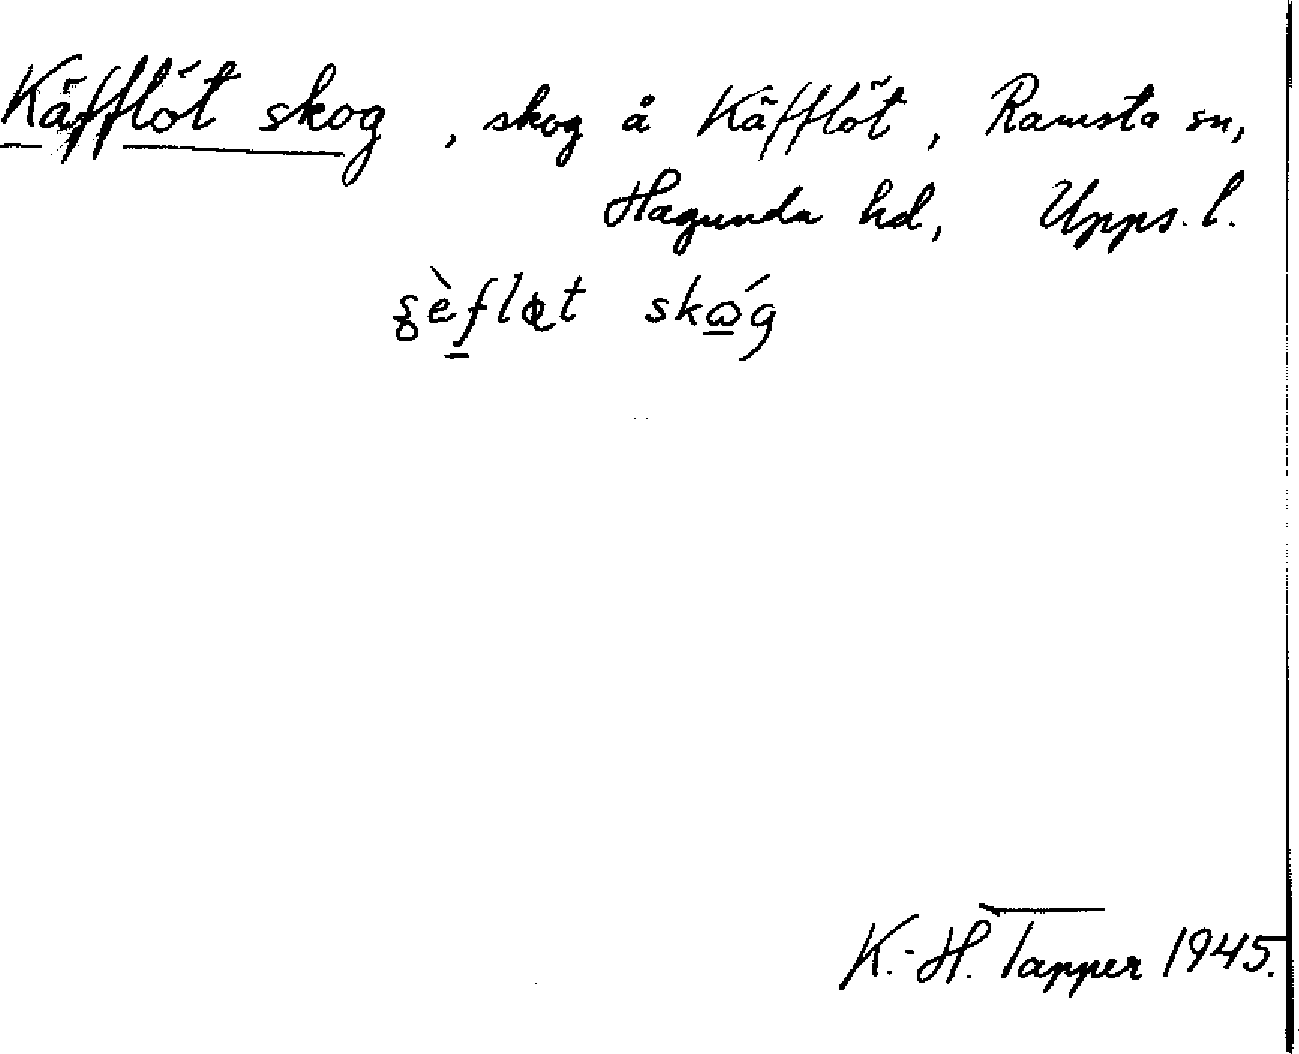 Käfflöt skog, skog å Käfflöt, Ramsta sn,
Hagunda hd, Upps. l.
skóg
K.-H. Tapper 1945.